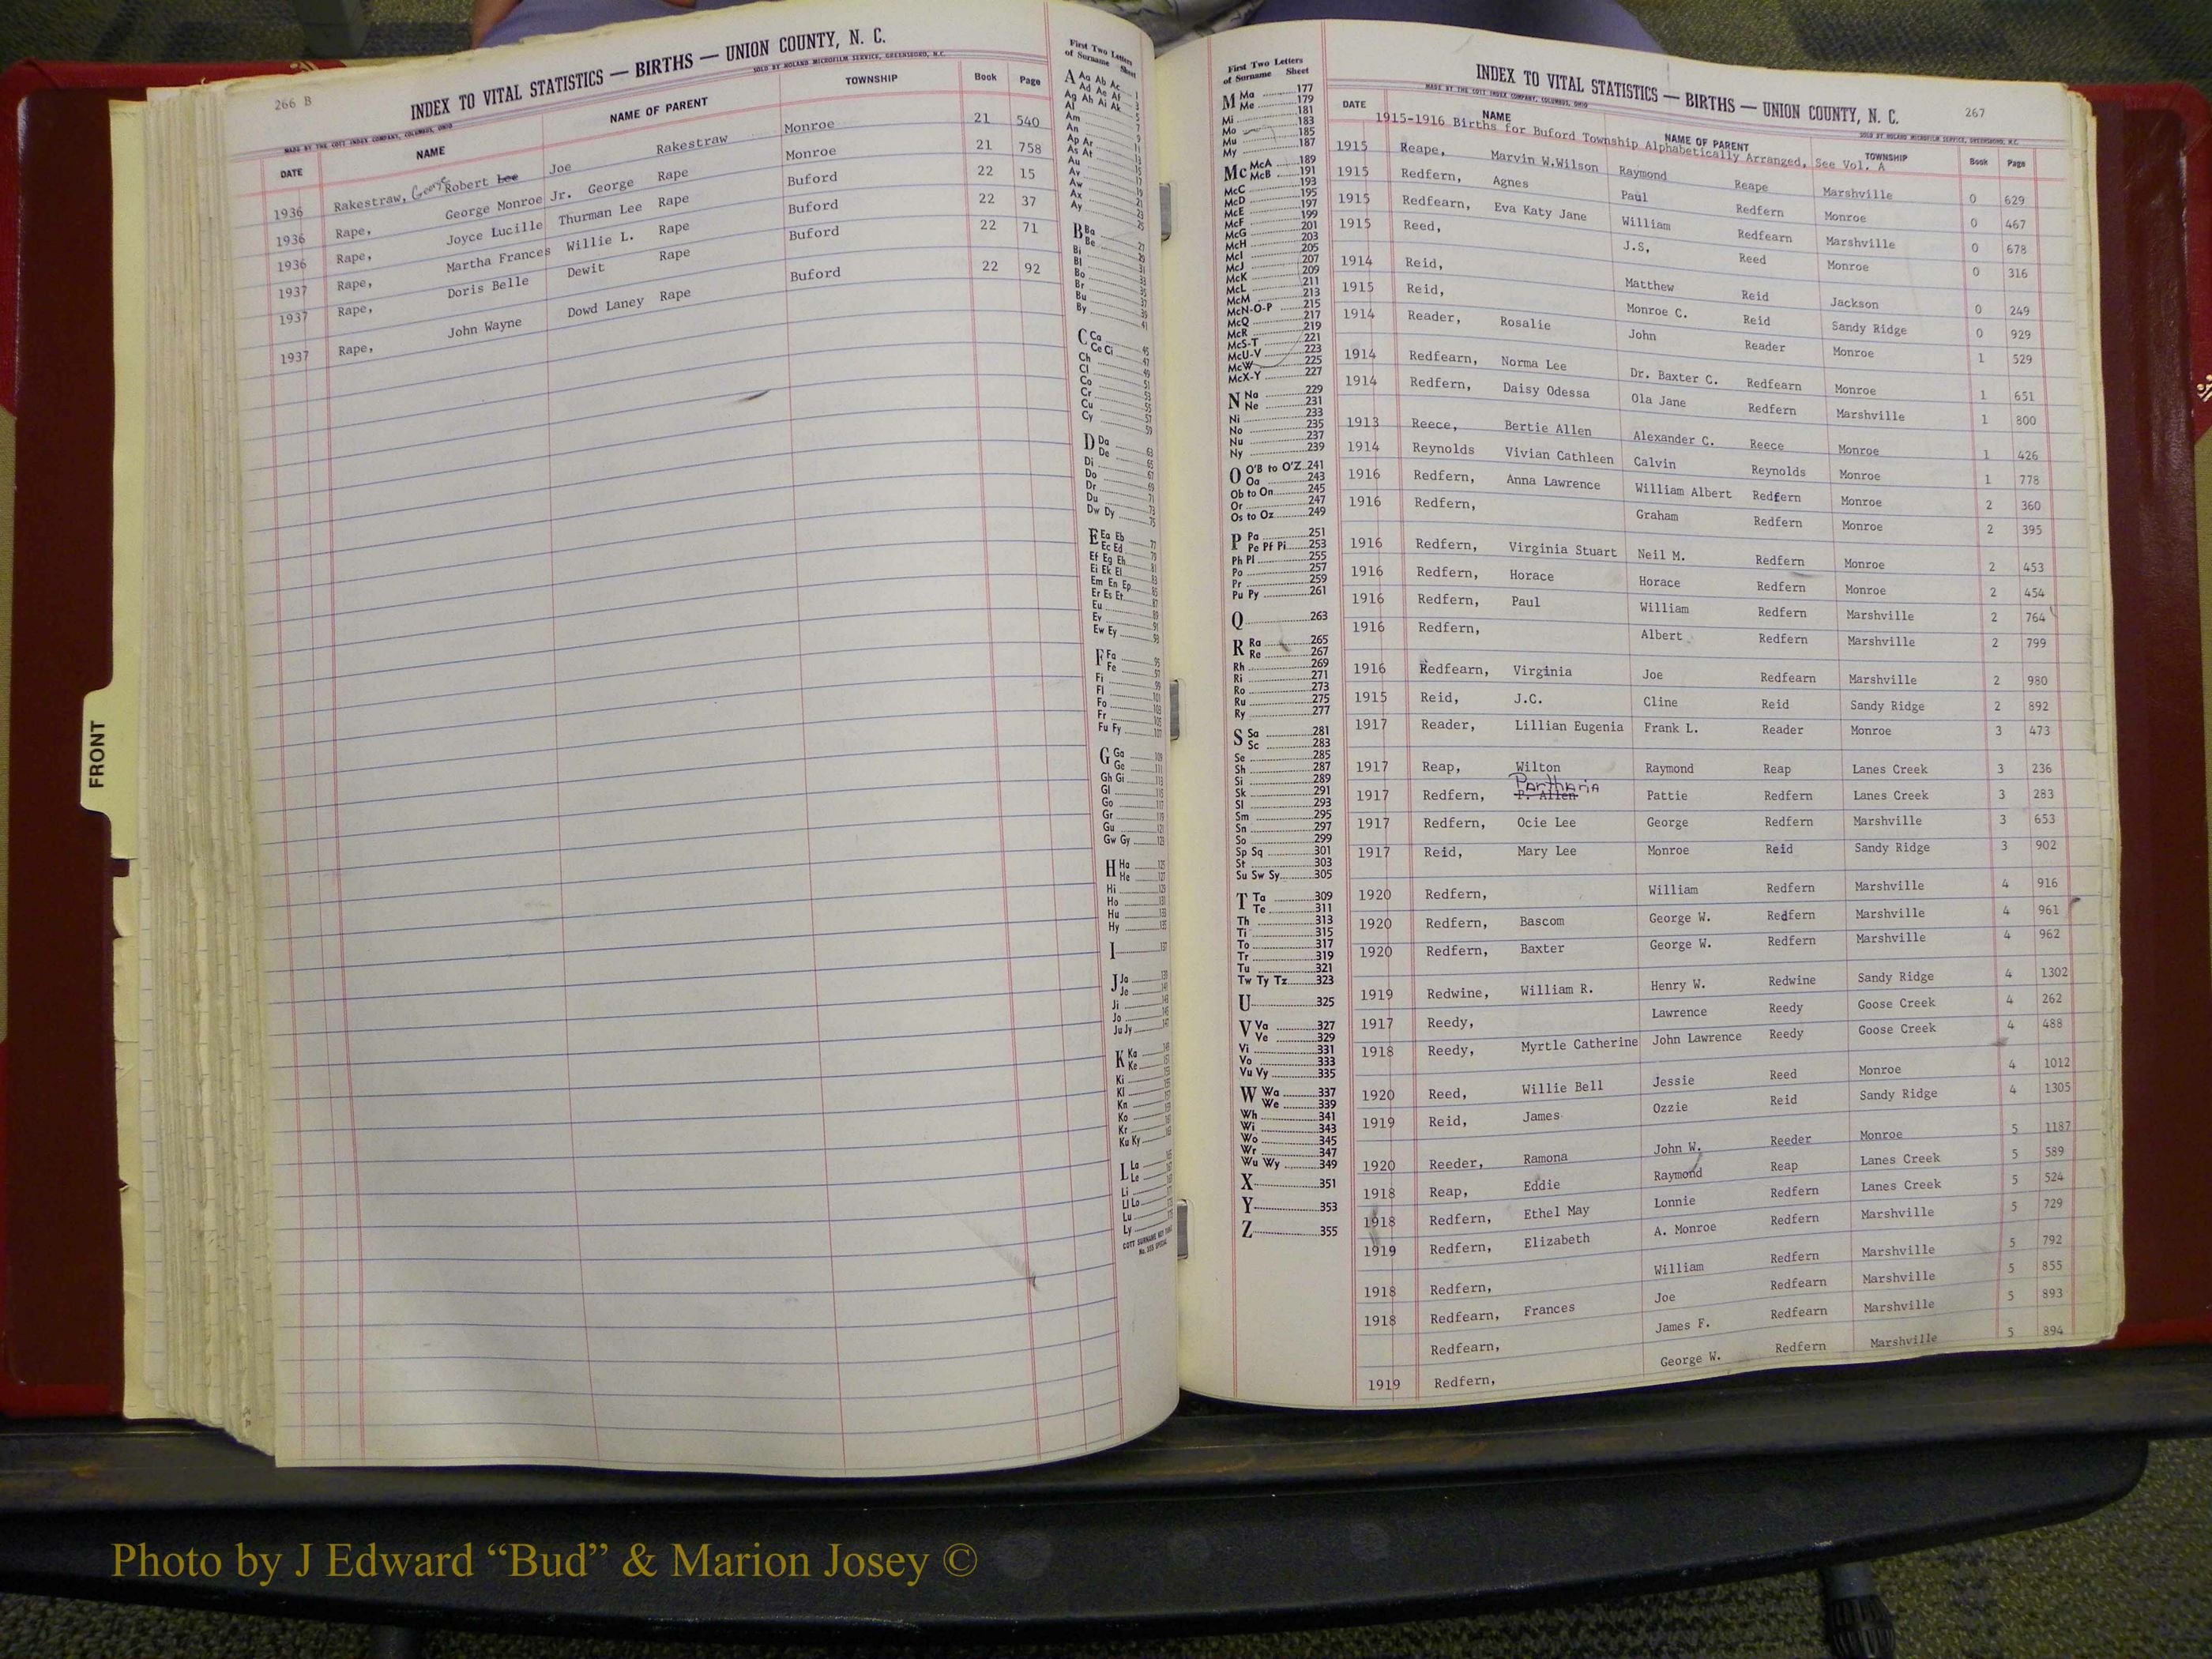 266 B
INDEX TO VITAL STATISTICS — BIRTHS — UNION COUNTY, N. C.
MADE BY THE COTT INDEX COMPANY, COLUMBUS, OHIO SOLD BY NOLAND MICROFILM SERVICE, GREENSBORO, N.C.
DATE NAME NAME OF PARENT TOWNSHIP Book Page
1936 Rakestraw, George Robert Lee Joe Rakestraw Monroe 21 540
1936 Rape, George Monroe Jr. George Rape Monroe 21 758
1936 Rape, Joyce Lucille Thurman Lee Rape Buford 22 15
1937 Rape, Martha Frances Willie L. Rape Buford 22 37
1937 Rape, Doris Belle Dewit Rape Buford 22 71
1937 Rape, John Wayne Dowd Laney Rape Buford 22 92
FRONT
First Two Letters
of Surname Sheet
A Aa Ab Ac 1
Ad Ae Af 3
Ag Ah Ai Ak 5
Al
Am
An
Ap Ar
As At
Au
Av
Aw
Ax
Ay
B Ba
Be
Bi
Bl
Bo
Br
Bu
By 41
C Ca 45
Ce Ci 47
Ch 49
Cl 51
Co 53
Cr
Cu 57
Cy 59
D Da 63
De 65
Di 67
Do 69
Dr 71
Du 73
Dw Dy 75
E Ea Eb 77
Ec Ed 79
Ef Eg Eh 81
Ei Ek El 83
Em En Ep 85
Er Es Et 87
Eu 89
Ev 91
Ew Ey 93
F Fa 95
Fe 97
Fi 99
Fl 101
Fo 103
Fr 105
Fu Fy 107
G Ga 109
Ge 111
Gh Gi 113
Gl 115
Go 117
Gr 119
Gu 121
Gw Gy 123
H Ha 125
He 127
Hi 129
Ho 131
Hu 133
Hy 135
I 137
J Ja 139
Je 141
Ji 143
Jo 145
Ju Jy 147
K Ka 149
Ke 151
Ki
Kl
Kn
Ko
Kr
Ku Ky
L La
Le
Li
Ll Lo
Lu
Ly
COTT SURNAME KEY TABS
First Two Letters
of Surname Sheet
M Ma 177
Me 179
Mi 181
Mo 183
Mu 185
My 187
Mc McA 189
McB 191
McC 193
McD 195
McE 197
McF 199
McG 201
McH 203
McI 205
McJ 207
McK 209
McL 211
McM 213
McN-O-P 215
McQ 217
McR 219
McS-T 221
McU-V 223
McW 225
McX-Y 227
N Na 229
Ne 231
Ni 233
No 235
Nu 237
Ny 239
O O'B to O'Z 241
Oa 243
Ob to On 245
Or 247
Os to Oz 249
P Pa 251
Pe Pf Pi 253
Ph Pl 255
Po 257
Pr 259
Pu Py 261
Q 263
R Ra 265
Re 267
Rh 269
Ri 271
Ro 273
Ru 275
Ry 277
S Sa 281
Sc 283
Se 285
Sh 287
Si 289
Sk 291
Sl 293
Sm 295
Sn 297
So 299
Sp Sq 301
St 303
Su Sw Sy 305
T Ta 309
Te 311
Th 313
Ti 315
To 317
Tr 319
Tu 321
Tw Ty Tz 323
U 325
V Va 327
Ve 329
Vi 331
Vo 333
Vu Vy 335
W Wa 337
We 339
Wh 341
Wi 343
Wo 345
Wr 347
Wu Wy 349
X 351
Y 353
Z 355
INDEX TO VITAL STATISTICS — BIRTHS — UNION COUNTY, N. C. 267
MADE BY THE COTT INDEX COMPANY, COLUMBUS, OHIO SOLD BY NOLAND MICROFILM SERVICE, GREENSBORO, N.C.
DATE NAME NAME OF PARENT TOWNSHIP Book Page
1915-1916 Births for Buford Township Alphabetically Arranged, See Vol. A
1915 Reape, Marvin W.Wilson Raymond Reape Marshville 0 629
1915 Redfern, Agnes Paul Redfern Monroe 0 467
1915 Redfearn, Eva Katy Jane William Redfearn Marshville 0 678
1915 Reed, J.S, Reed Monroe 0 316
1914 Reid, Matthew Reid Jackson 0 249
1915 Reid, Monroe C. Reid Sandy Ridge 0 929
1914 Reader, Rosalie John Reader Monroe 1 529
1914 Redfearn, Norma Lee Dr. Baxter C. Redfearn Monroe 1 651
1914 Redfern, Daisy Odessa Ola Jane Redfern Marshville 1 800
1913 Reece, Bertie Allen Alexander C. Reece Monroe 1 426
1914 Reynolds Vivian Cathleen Calvin Reynolds Monroe 1 778
1916 Redfern, Anna Lawrence William Albert Redfern Monroe 2 360
1916 Redfern, Graham Redfern Monroe 2 395
1916 Redfern, Virginia Stuart Neil M. Redfern Monroe 2 453
1916 Redfern, Horace Horace Redfern Monroe 2 454
1916 Redfern, Paul William Redfern Marshville 2 764
1916 Redfern, Albert Redfern Marshville 2 799
1916 Redfearn, Virginia Joe Redfearn Marshville 2 980
1915 Reid, J.C. Cline Reid Sandy Ridge 2 892
1917 Reader, Lillian Eugenia Frank L. Reader Monroe 3 473
1917 Reap, Wilton Raymond Reap Lanes Creek 3 236
1917 Redfern, P. Allen Parthenia Pattie Redfern Lanes Creek 3 283
1917 Redfern, Ocie Lee George Redfern Marshville 3 653
1917 Reid, Mary Lee Monroe Reid Sandy Ridge 3 902
1920 Redfern, William Redfern Marshville 4 916
1920 Redfern, Bascom George W. Redfern Marshville 4 961
1920 Redfern, Baxter George W. Redfern Marshville 4 962
1919 Redwine, William R. Henry W. Redwine Sandy Ridge 4 1302
1917 Reedy, Lawrence Reedy Goose Creek 4 262
1918 Reedy, Myrtle Catherine John Lawrence Reedy Goose Creek 4 488
1920 Reed, Willie Bell Jessie Reed Monroe 4 1012
1919 Reid, James Ozzie Reid Sandy Ridge 4 1305
1920 Reeder, Ramona John W. Reeder Monroe 5 1187
1918 Reap, Eddie Raymond Reap Lanes Creek 5 589
1918 Redfern, Ethel May Lonnie Redfern Lanes Creek 5 524
1919 Redfern, Elizabeth A. Monroe Redfern Marshville 5 729
1918 Redfern, William Redfern Marshville 5 792
1918 Redfearn, Frances Joe Redfearn Marshville 5 855
Redfearn, James F. Redfearn Marshville 5 893
1919 Redfern, George W. Redfern Marshville 5 894
Photo by J Edward “Bud” & Marion Josey ©